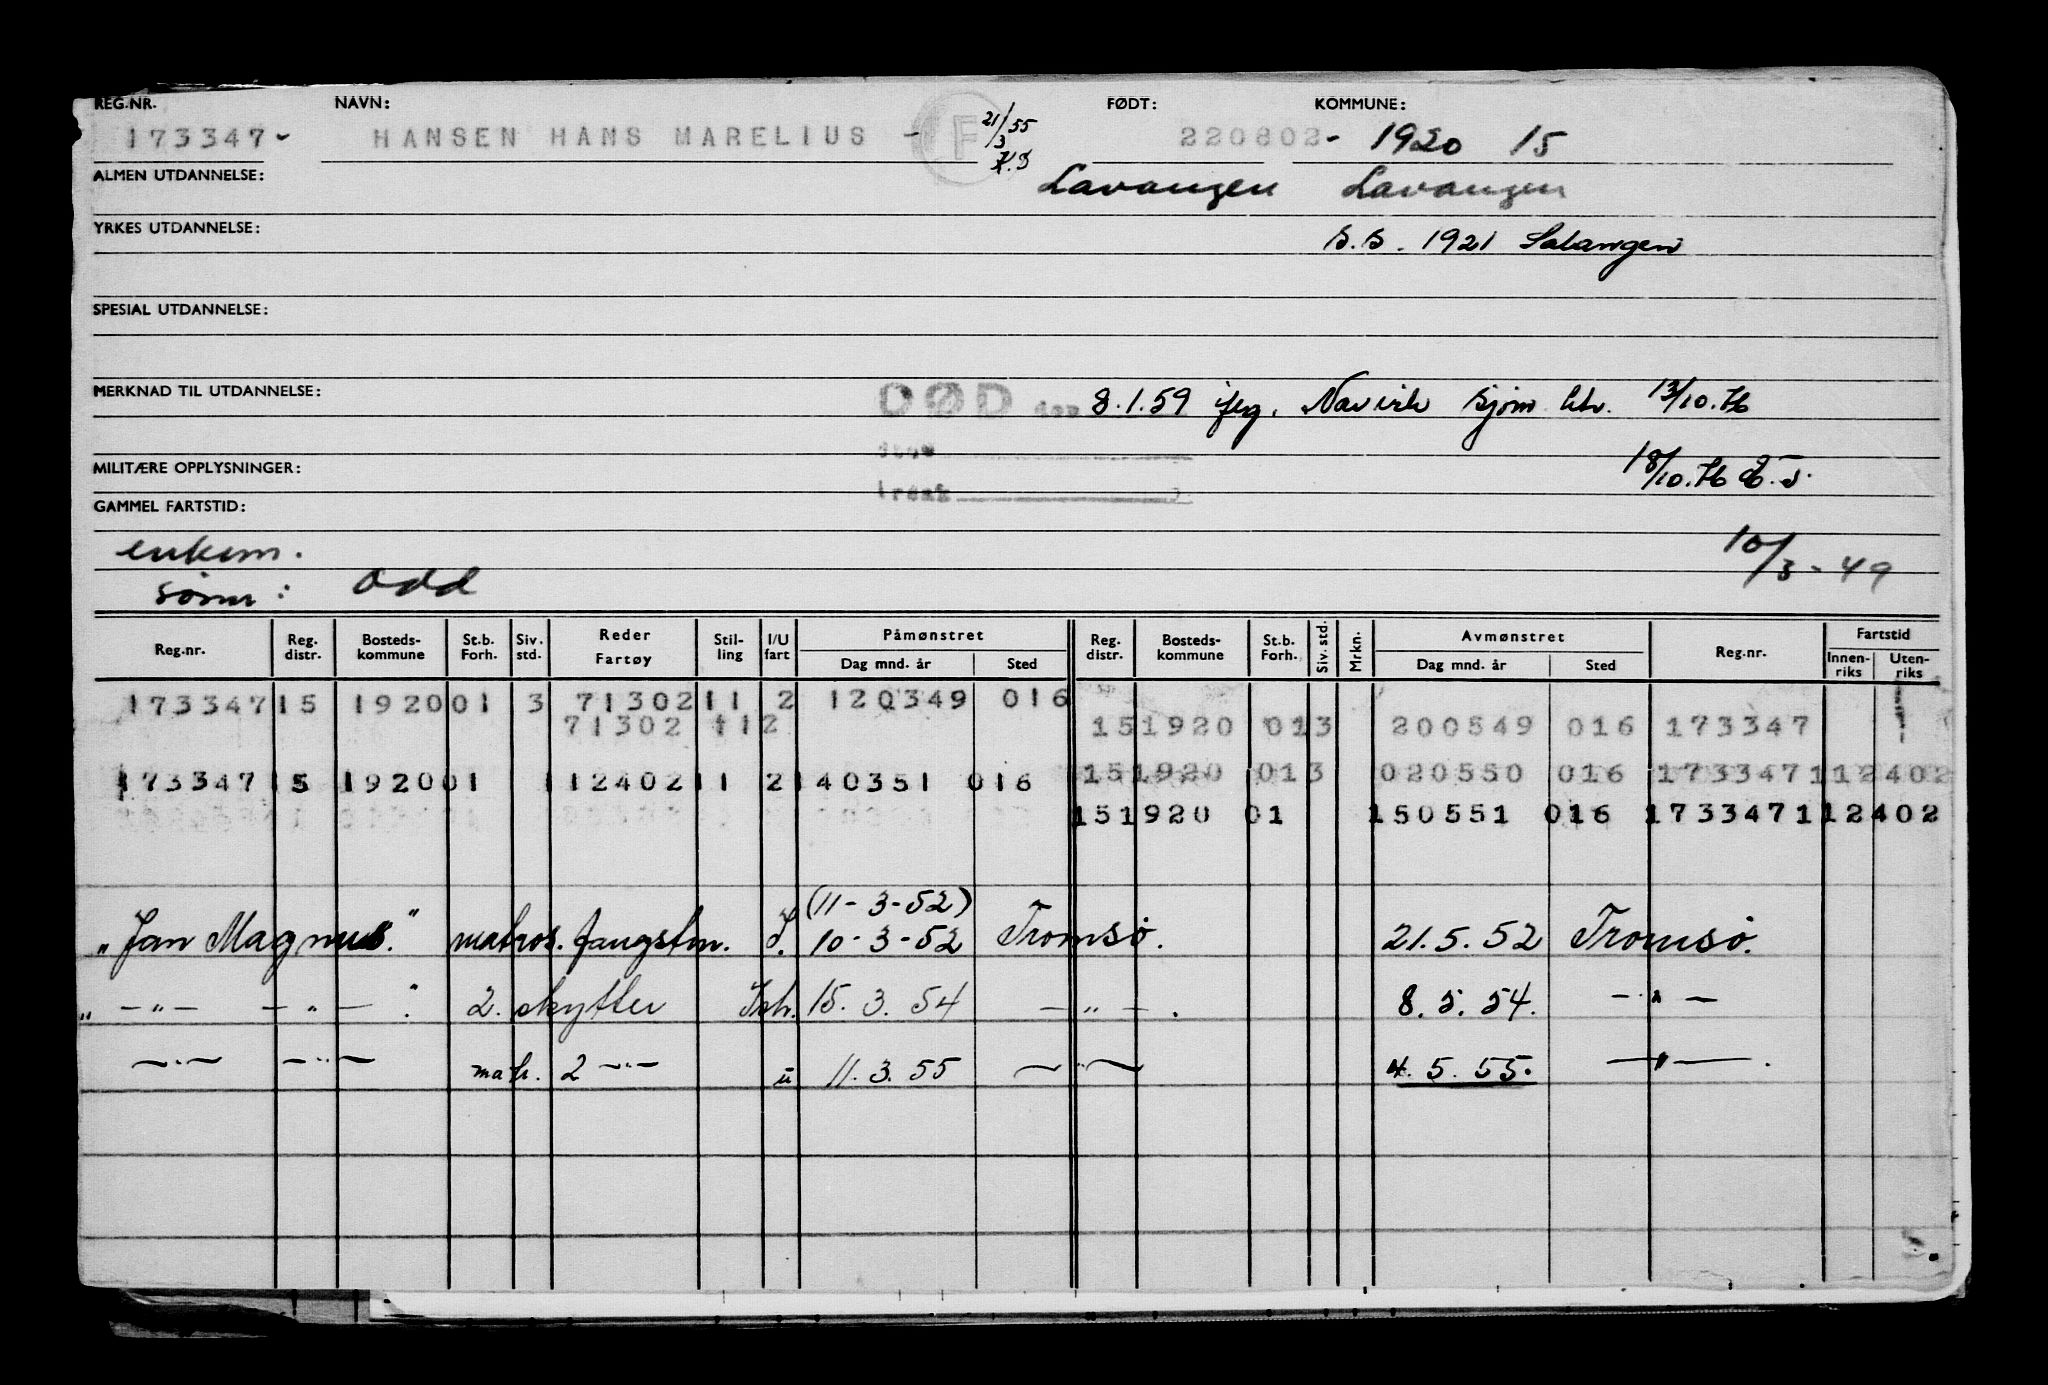 REG.NR. NAVN: FØDT: KOMMUNE:
173347- HANSEN HANS MARELIUS - F 21/3 55 220802- 1920 15
ALMEN UTDANNELSE: Lavangen Lavangen
YRKES UTDANNELSE: S.S. 1921 Salangen
SPESIAL UTDANNELSE:
MERKNAD TIL UTDANNELSE: DØD den 8.1.59 Navik 13/10.
MILITÆRE OPPLYSNINGER: 18/10.
GAMMEL FARTSTID:
enkem. 10/3-49
sønn: Odd
Reg.nr. Reg. distr. Bosteds-kommune St.b. Forh. Siv. std. Reder Fartøy Stil-ling I/U fart Påmønstret Dag mnd. år Sted Reg. distr. Bosteds-kommune St.b. Forh. Siv. std. Mrkn. Avmønstret Dag mnd. år Sted Reg.nr. Fartstid Innen-riks Uten-riks
173347 15 1920 01 3 71302 11 2 120349 016
71302 112 151920 013 200549 016 173347
151920 013 020550 016 173347 112402
173347 15 1920 01 112402 11 2 140351 016
151920 01 150551 016 173347 112402
(11-3-52)
"Jan Magnus." matros. fangstm. 10-3-52 Tromsø. 21.5.52 Tromsø.
" — " — — " — ". 2. skytter Ish. 15. 3. 54 — " — . 8. 5. 54. — " —
— " — — " — matr. 2 — " — u 11. 3. 55 — " — 4. 5. 55. — " — .